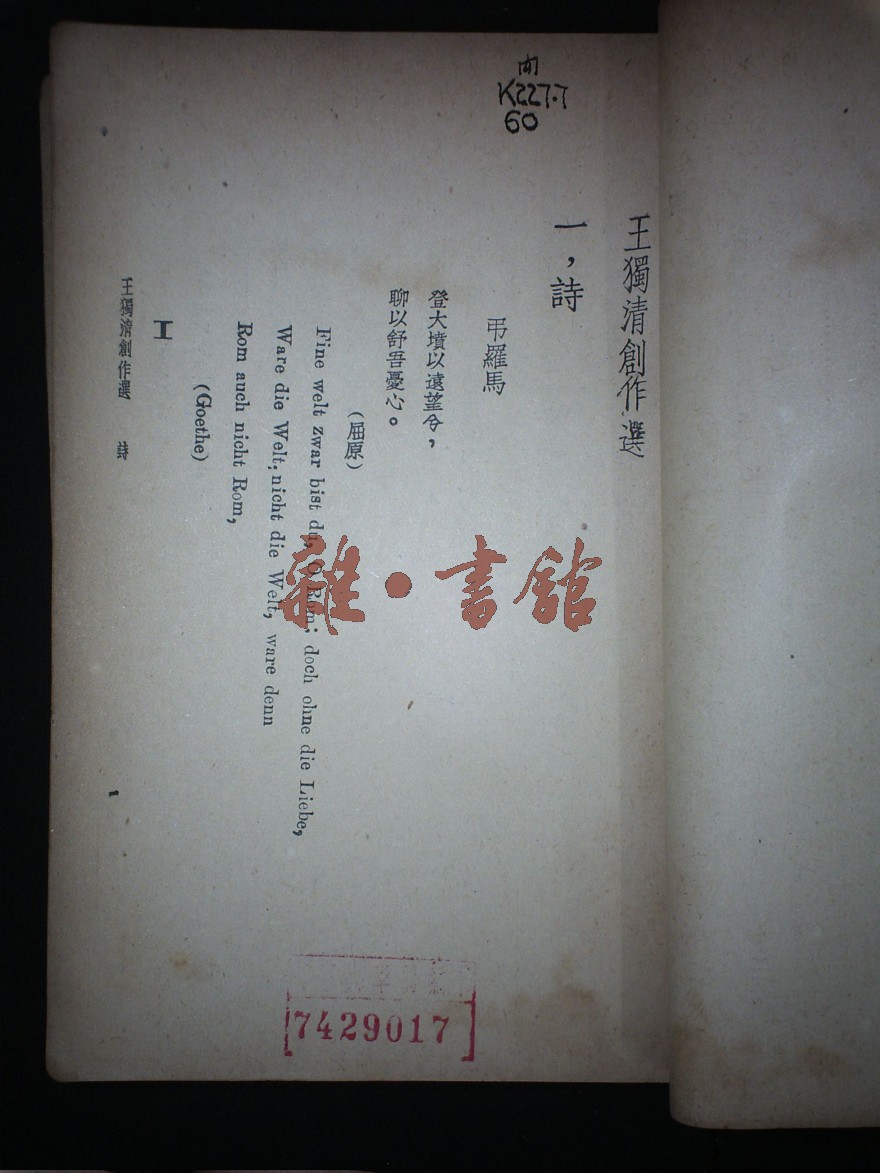 K227.7
60
王獨清創作選
一，詩
弔羅馬
登大墳以遠望兮，
聊以舒吾憂心。
(屈原)
Fine welt zwar bist du, O Rom; doch ohne die Liebe,
Ware die Welt, nicht die Welt, ware denn
Rom auch nicht Rom,
(Goethe)
I
王獨清創作選 詩
雜·書館
7429017